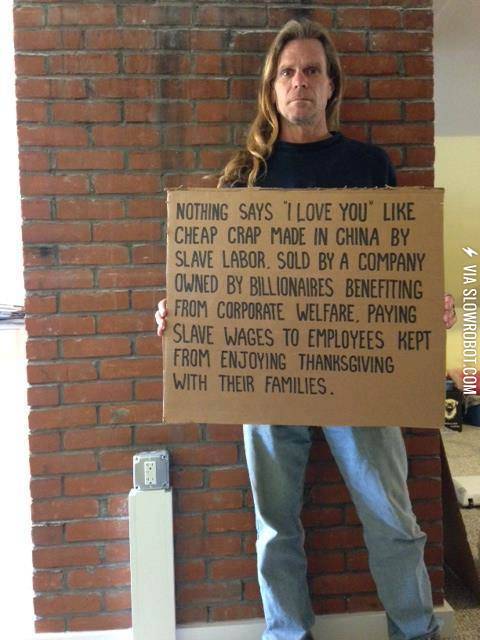 NOTHING SAYS "I LOVE YOU" LIKE
CHEAP CRAP MADE IN CHINA BY
SLAVE LABOR. SOLD BY A COMPANY
OWNED BY BILLIONAIRES BENEFITING
FROM CORPORATE WELFARE. PAYING
SLAVE WAGES TO EMPLOYEES KEPT
FROM ENJOYING THANKSGIVING
WITH THEIR FAMILIES.
VIA SLOWROBOT.COM